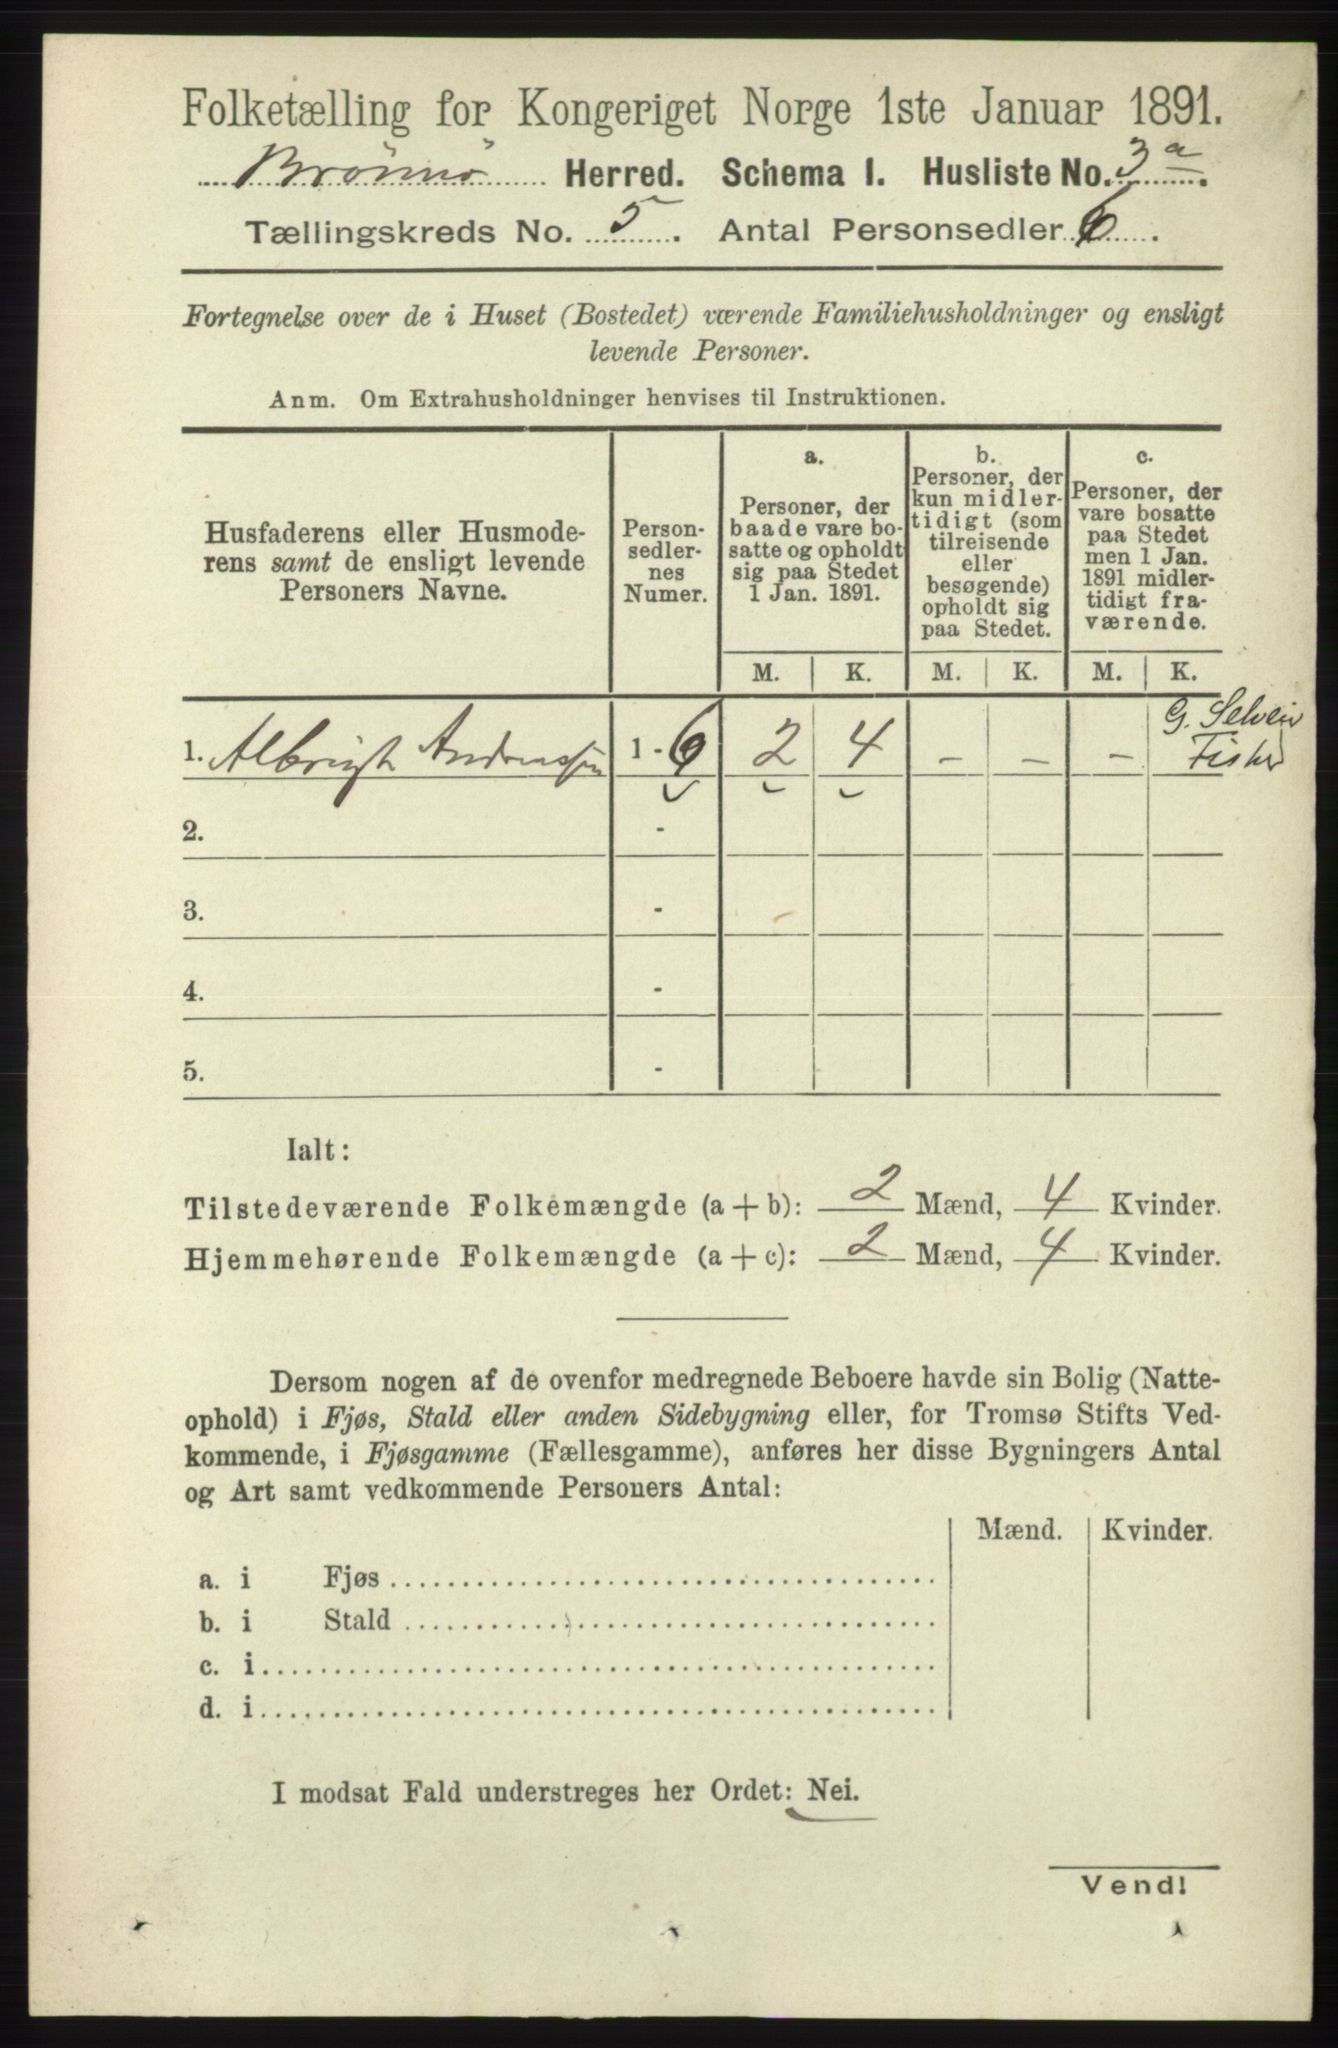 Folketælling for Kongeriget Norge 1ste Januar 1891.
Brönnö Herred. Schema I. Husliste No. 3 a.
Tællingskreds No. 5. Antal Personsedler 6.
Fortegnelse over de i Huset (Bostedet) værende Familiehusholdninger og ensligt
levende Personer.
Anm. Om Extrahusholdninger henvises til Instruktionen.
Husfaderens eller Husmode-
rens samt de ensligt levende
Personers Navne.
Person-
sedler-
nes
Numer.
a.
Personer, der
baade vare bo-
satte og opholdt
sig paa Stedet
1 Jan. 1891.
b.
Personer, der
kun midler-
tidigt (som
tilreisende
eller
besøgende)
opholdt sig
paa Stedet.
c.
Personer, der
vare bosatte
paa Stedet
men 1 Jan.
1891 midler-
tidigt fra-
værende.
M. K. M. K. M. K.
1. Albrigt Andreassen 1 - 6 2 4 - - - G.
Fisker
2. -
3. -
4. -
5. -
Ialt:
Tilstedeværende Folkemængde (a + b): 2 Mænd, 4 Kvinder.
Hjemmehørende Folkemængde (a + c): 2 Mænd, 4 Kvinder.
Dersom nogen af de ovenfor medregnede Beboere havde sin Bolig (Natte-
ophold) i Fjøs, Stald eller anden Sidebygning eller, for Tromsø Stifts Ved-
kommende, i Fjøsgamme (Fællesgamme), anføres her disse Bygningers Antal
og Art samt vedkommende Personers Antal:
Mænd. Kvinder.
a. i Fjøs
b. i Stald
c. i
d. i
I modsat Fald understreges her Ordet: Nei.
Vend!